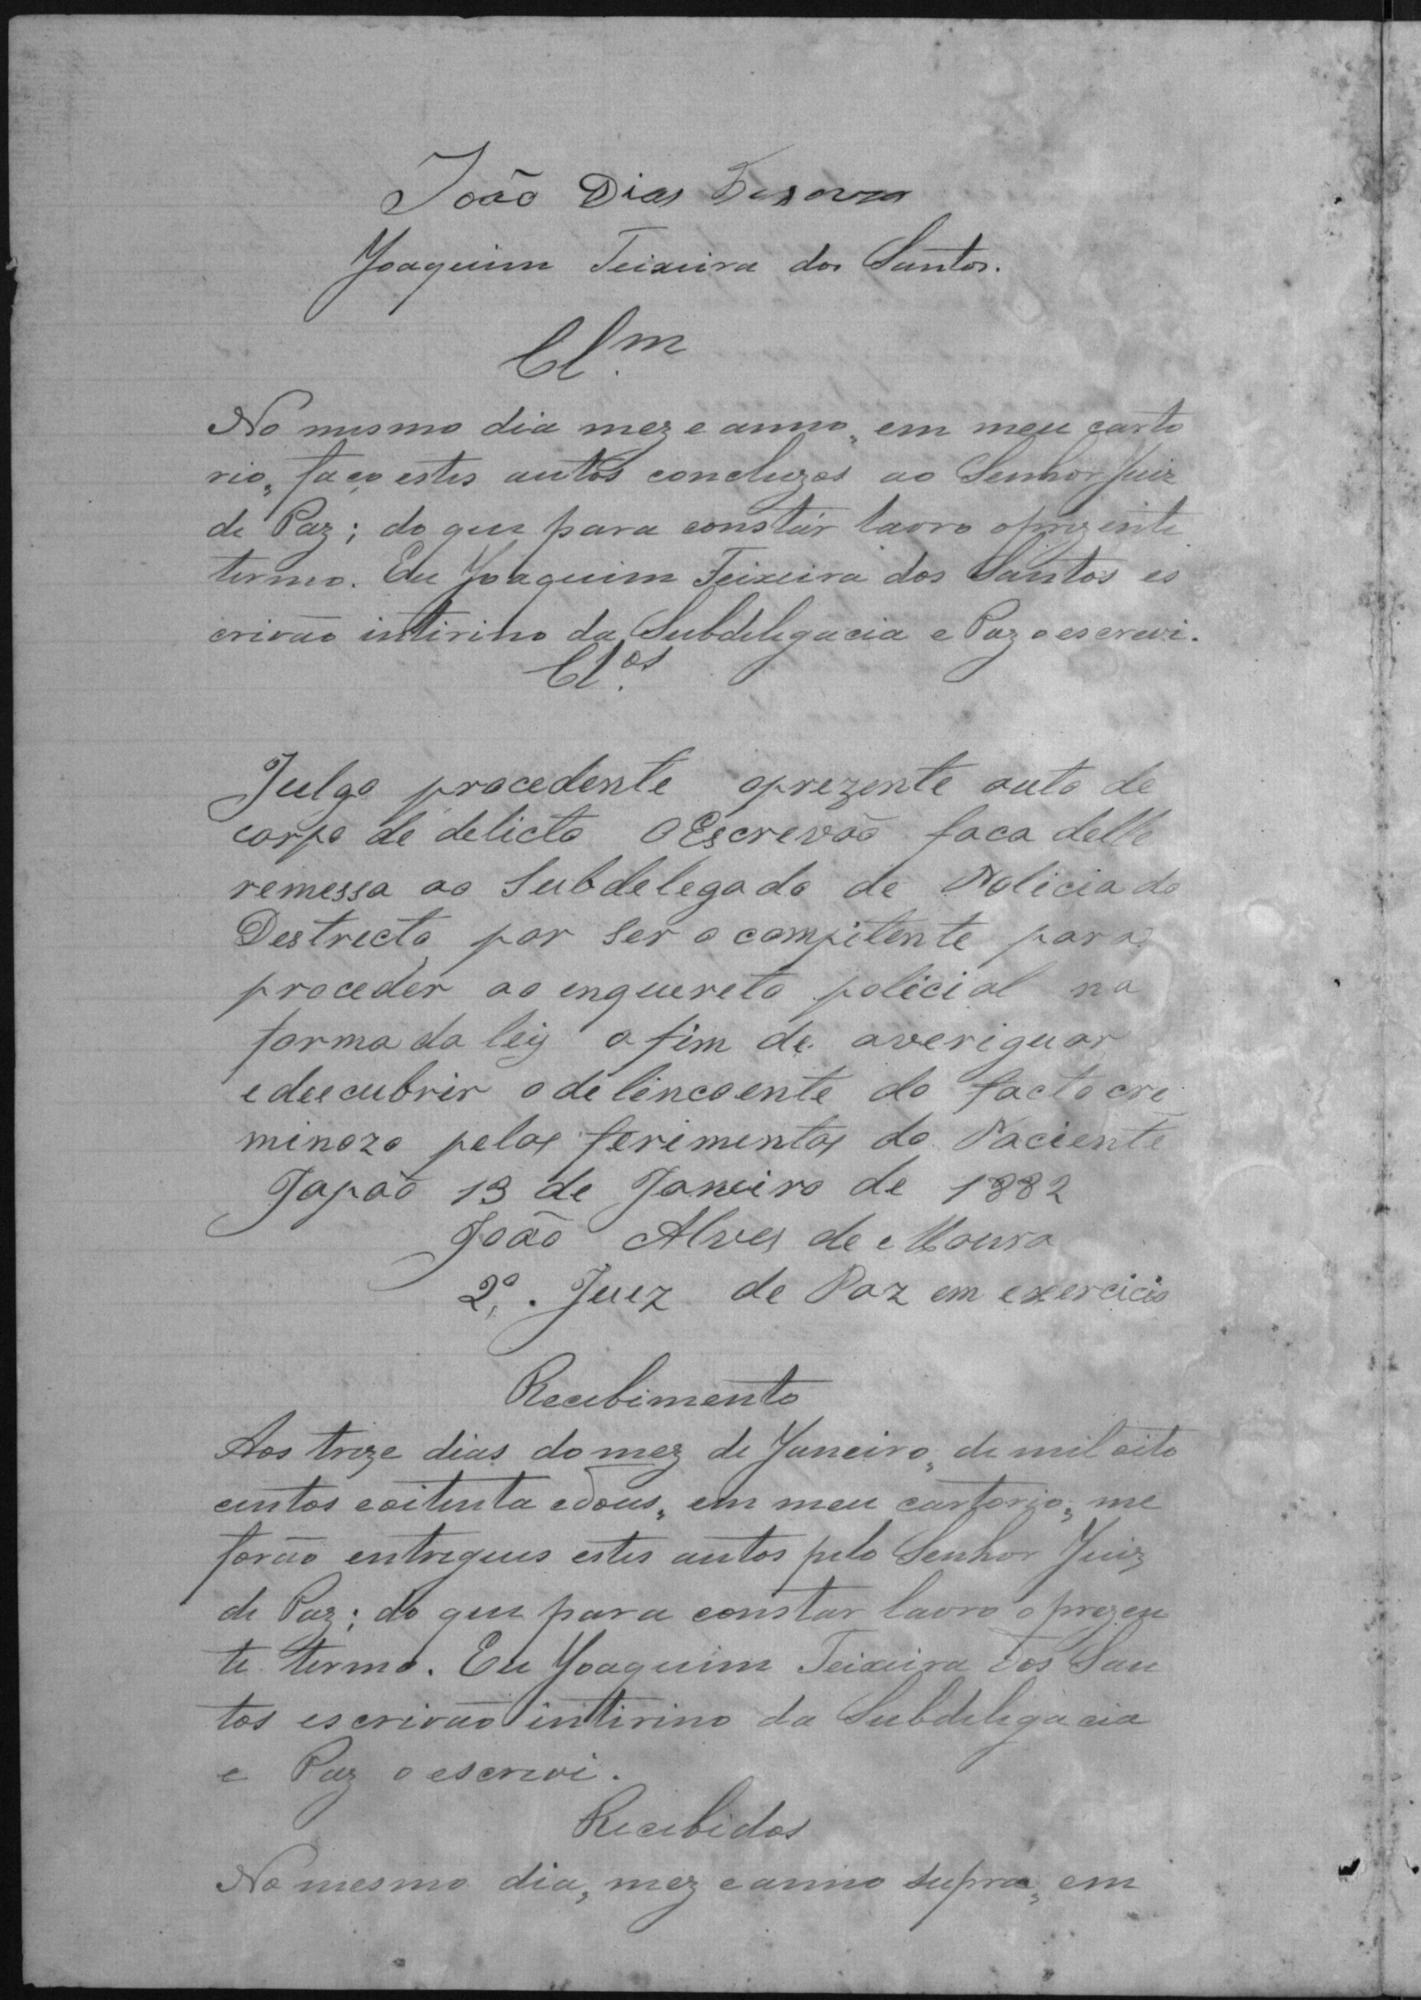 João Dias Desouza
Joaquim Teixeira dos Santos.
Cl.m
No mesmo dia mez e anno, em meu carto
rio, faço estes autos concluzos ao Senhor Juiz
de Paz; do que para constár lavro o prezente
termo. Eu Joaquim Teixeira dos Santos es
crivão intirino da Subdelegacia e Paz o escrevi.
Cl.os
Julgo procedente oprezente auto de
corpo de delicto OEscrevão faca delle
remessa ao Subdelegado de Policia do
Destrecto por ser o compitente para
proceder ao enquereto policial na
forma da ley a fim de averiguar
e descubrir o delincoente do facto cre
minozo pelos ferimentos do Paciente
Japão 13 de Janeiro de 1882
João Alves de Moura
2º. Juez de Paz em exercicio
Recebimento
Aos treze dias do mez de Janeiro, de mil oito
centos eoitenta edous, em meu cartorio, me
forão entregues estes autos pelo Senhor Juiz
de Paz; do que para constar lavro o prezen
te termo. Eu Joaquim Teixeira dos San
tos escrivão intirino da Subdelegacia
e Paz o escrevi.
Recebidos
No mesmo dia, mez e anno supra, em